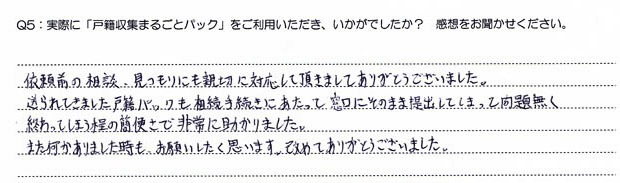 Q5：実際に「戸籍収集まるごとパック」をご利用いただき、いかがでしたか？　感想をお聞かせください。
依頼前の相談、見つもりにも親切に対応して頂きましてありがとうございました。
送られてきました戸籍パックも相続手続きにあたって窓口にそのまま提出してしまって問題無く
終わってしまう程の簡便さで非常に助かりました。
また何かありました時も、お願いしたく思います。改めてありがとうございました。